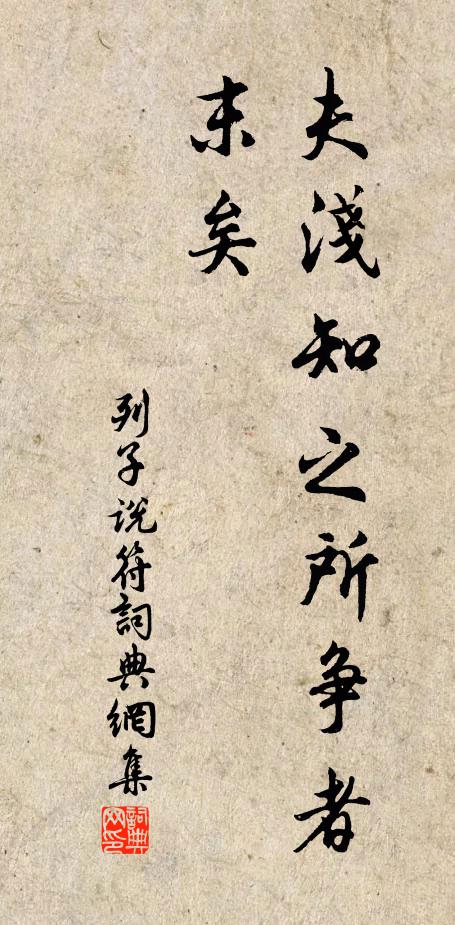 夫淺知之所争者
末矣
列子说符詞典網集
詞典网印